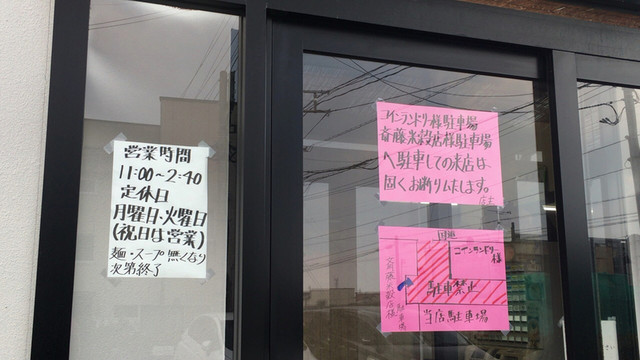 営業時間
11:00~2:40
定休日
月曜日・火曜日
(祝日は営業)
麺・スープ無くなり
次第終了
コインランドリー様駐車場
斎藤米穀店様駐車場
へ駐車しての来店は
固くお断りいたします。
店主
コインランドリー
様
駐車禁止
斎藤米穀店様
駐車場
当店駐車場